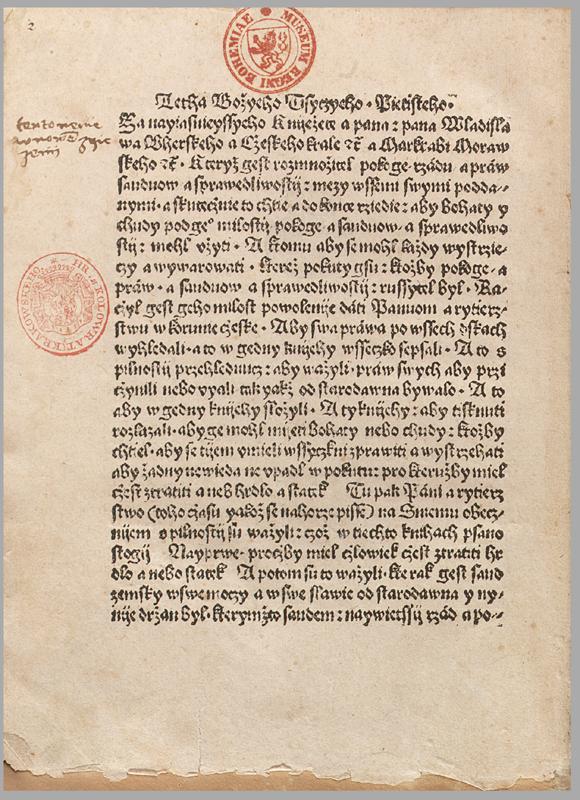 2
MUSEUM REGNI BOHEMIAE
Letha Božyeho Tisyczyeho · Pietisteho ·
Za nayiasnieyssyeho Kniježete a pana : pana Wladisla
wa Vherskeho a Czeskeho krale ⁊č a Markrabi Moraw
skeho ⁊č · Kteryž gest rozmnožitel pokoge · rzadu · a práw
sanduow · a sprawedliwostij : mezy wssemi swymi podda-
nymi · a skutecznie to chtie a do konce rziedie : aby bohaty y
chudy pod geº milostij pokoge · a sanduow · a sprawedliwo
stij : mohl vžyti · A k tomu aby se mohl každy wystrzie-
czy a wywarowati · kerež pokuty gsu : ktožby pokoge · a
práw · a sanduow a sprawedliwostij : russytel byl · Ra-
czyl gest geho milost powolenije dáti Panuom a rytierz-
stwu w korunie czeske · Aby swa práwa po wssech dskach
wyhledali · a to w gedny knijehy wsseczko sepsali · A to s
pilnostij przehlednucz : aby wažyli · práw swych aby przi
czynili nebo vyali tak yakž od starodawna bywalo · A to
aby w gedny knijehy složyli · A ty knijehy : aby tisknuti
rozkazali · aby ge mohl mijeti bohaty nebo chudy : ktožby
chtiel · aby se tijem vmieli wssyczkni zprawiti a wystrzehati
aby žadny newieda ne vpadl w pokutu : pro keružby miel
czest ztratiti a neb hrdlo a statek Tu pak Páni a rytierz
stwo (toho czasu yakož se nahorze pisse) na Sniemu obecz-
nijem s pilnostij su wažyli : czož w tiechto knihach psano
stogij Nayprwe · proczby miel czlowiek czest ztratiti hr
dlo a nebo statek A potom su to wažyli · kterak gest saud
zemsky w swe moczy a w swe slawie od starodawna y ny-
nije držan byl · kterymžto saudem : naywietssij rzád a po-